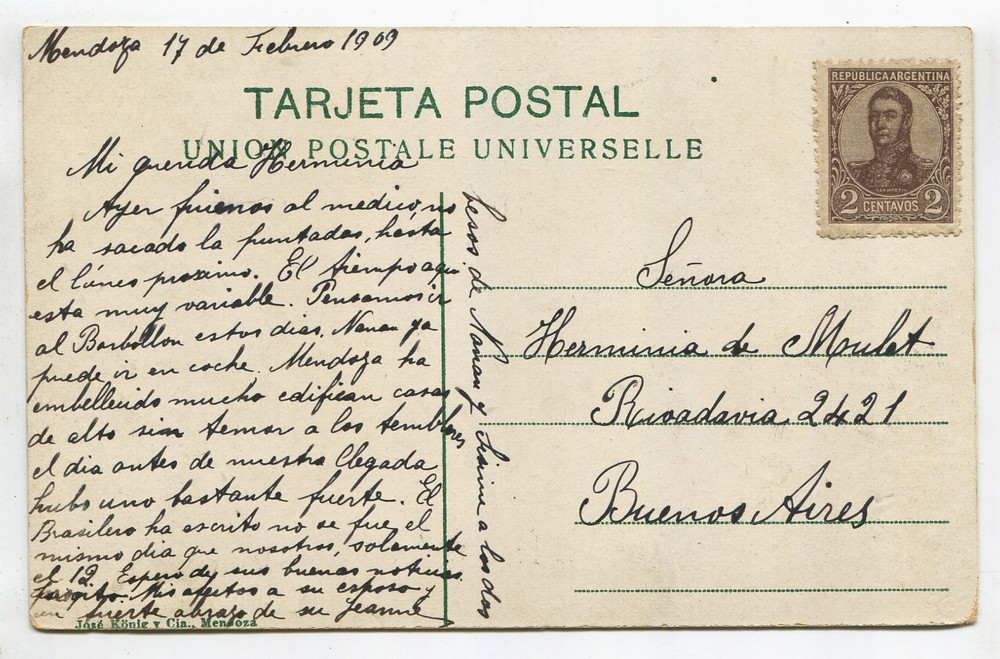 Mendoza 17 de Febrero 1909
TARJETA POSTAL
UNION POSTALE UNIVERSELLE
REPUBLICA ARGENTINA
SAN MARTIN
2 CENTAVOS 2
Mi querida Herminia
Ayer fuimos al medico, no
ha sacado la puntadas, hasta
el lúnes proximo. El tiempo aqui
esta muy variable. Pensamos ir
al Borbollon estos dias, Nanau ya
puede ir en coche. Mendoza ha
embellecido mucho edifican casas
de alto sin temor a los temblores
el dia antes de nuestra llegada
hubo uno bastante fuerte. El
Brasilero ha escrito no se fue, el
mismo dia que nosotros, solamente
el 12. Espero de sus buenas noticias
Mis afectos a su esposo y
un fuerte abrazo de su Jeanne
besos de Nanau y a los dos
Señora
Herminia de Mulet
Rivadavia 2421
Buenos Aires
José König y Cia., Mendoza